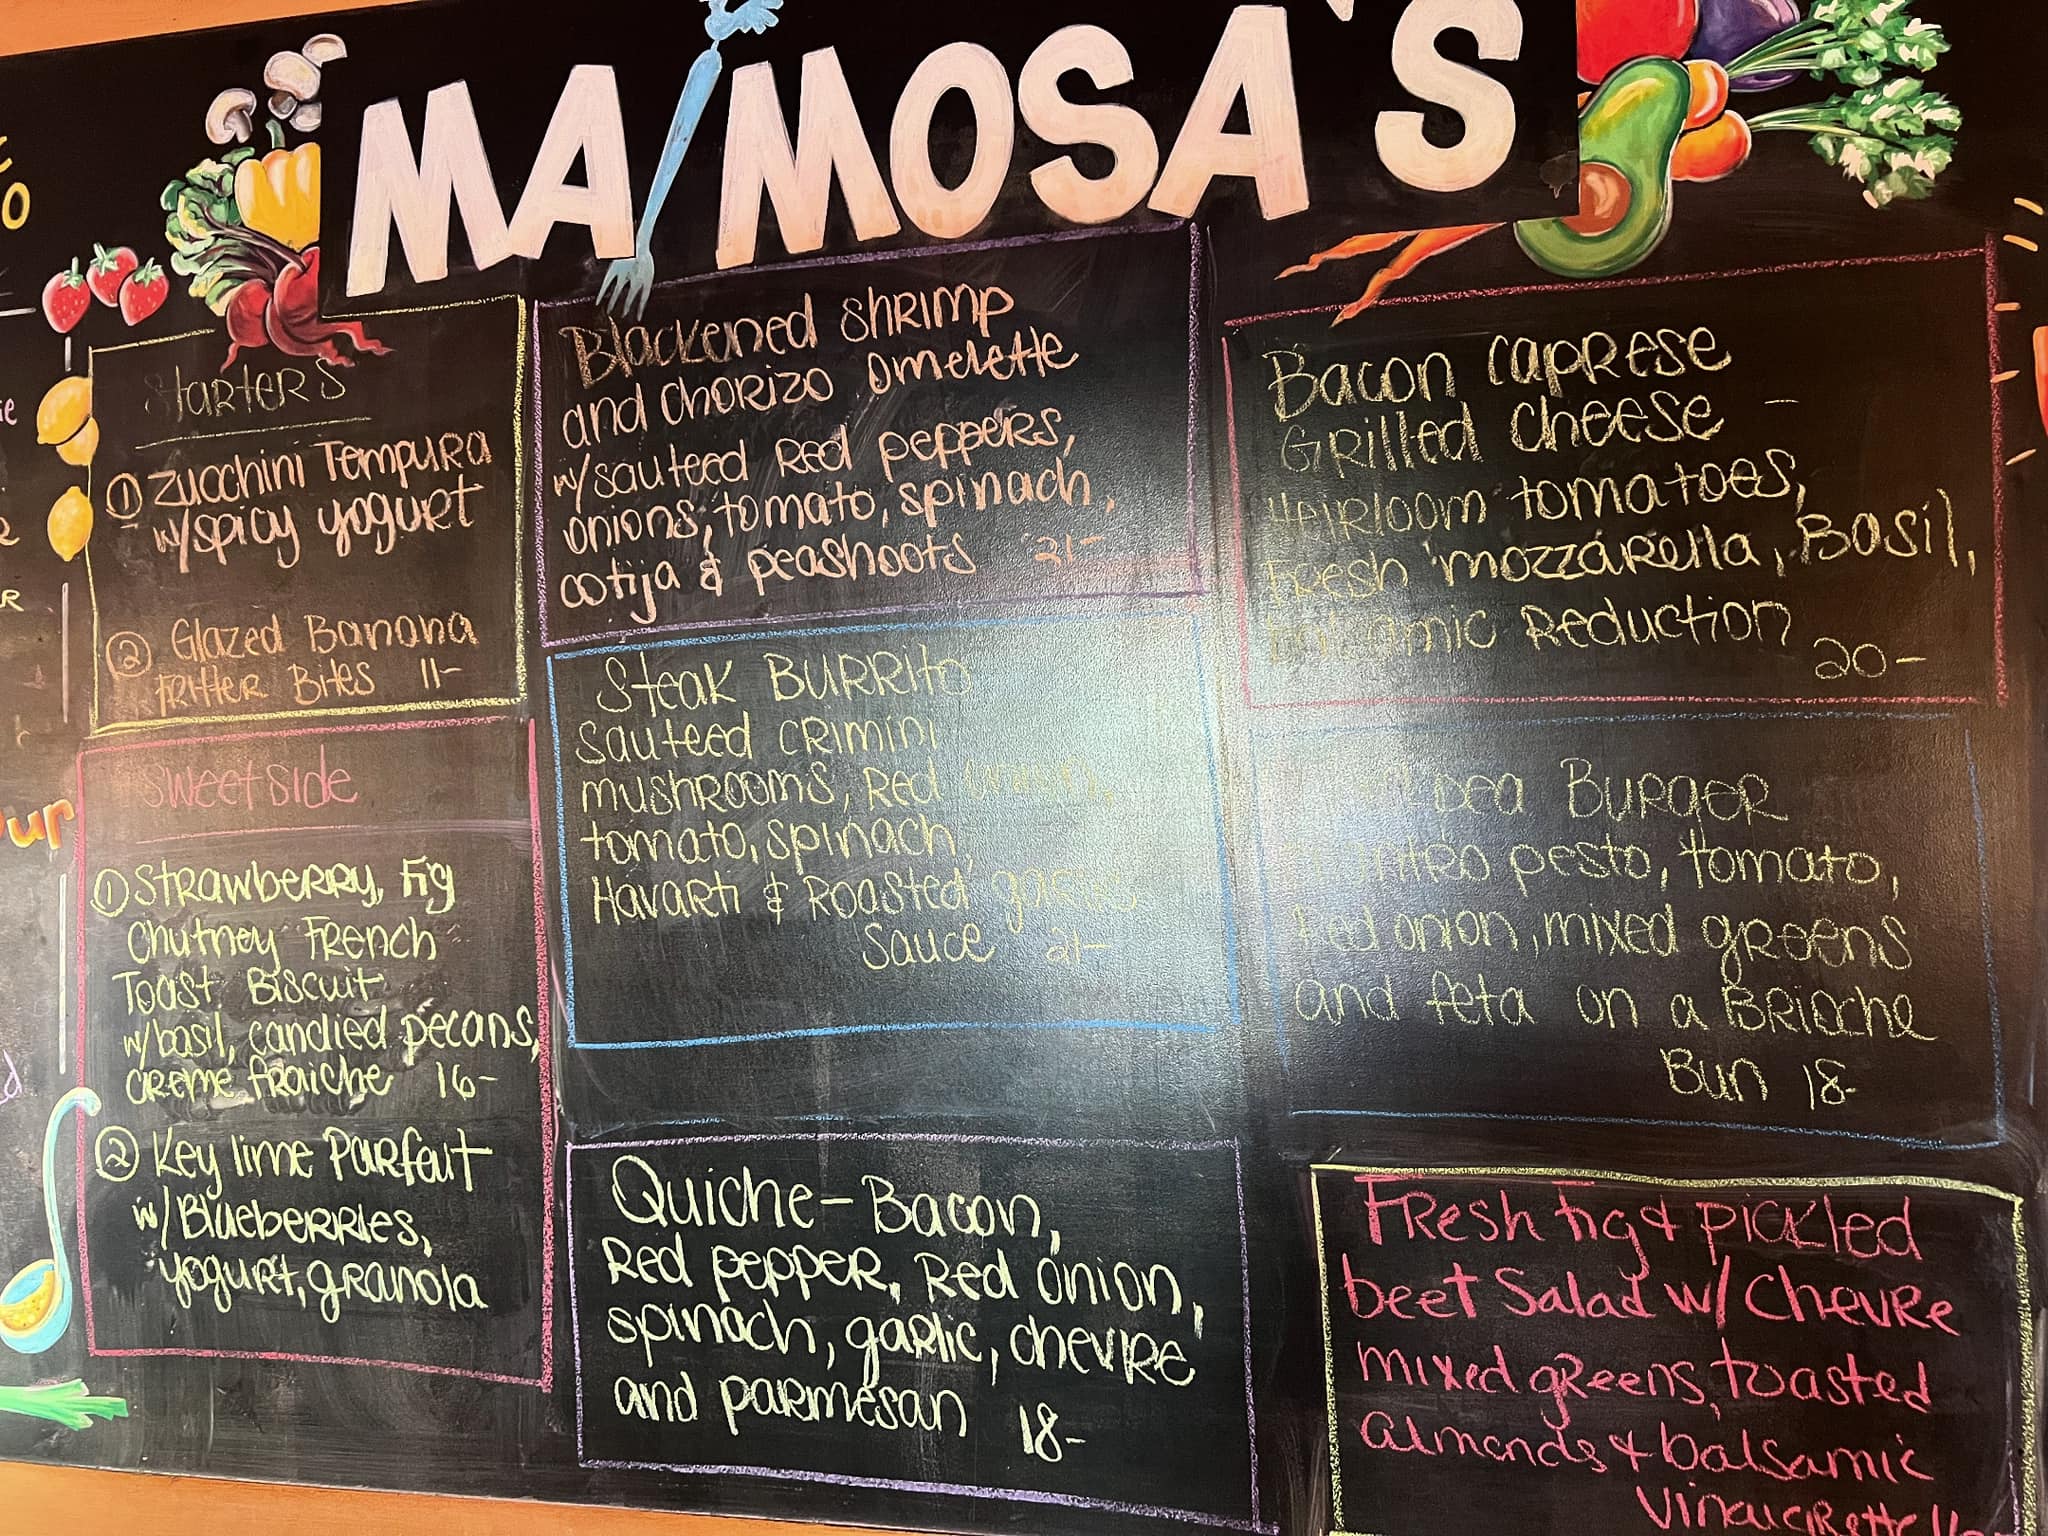 MA/MOSA'S
Starters
① Zucchini Tempura
w/spicy yogurt
② Glazed Banana
Fritter Bites 11-
Sweet side
① Strawberry, Fig
Chutney French
Toast Biscuit
w/basil, candied pecans,
creme fraiche 16-
② Key lime Parfeut
w/Blueberries,
yogurt, granola
Blackened shrimp
and chorizo omelette
w/sauteed Red peppers,
onions, tomato, spinach,
cotija & peashoots 21-
Steak Burrito
sauteed crimini
mushrooms, Red
tomato, spinach
Havarti & Roasted garlic
sauce 21-
Quiche - Bacon,
Red pepper, Red onion,
spinach, garlic, chevre
and parmesan 18-
Bacon caprese
Grilled cheese -
Heirloom tomatoes,
Fresh mozzarella, Basil,
Balsamic Reduction
20-
Burger
pesto, tomato,
Red onion, mixed greens
and feta on a Brioche
Bun 18-
Fresh fig & pickled
beet Salad w/ Chevre
mixed greens, toasted
almonds & balsamic
ur